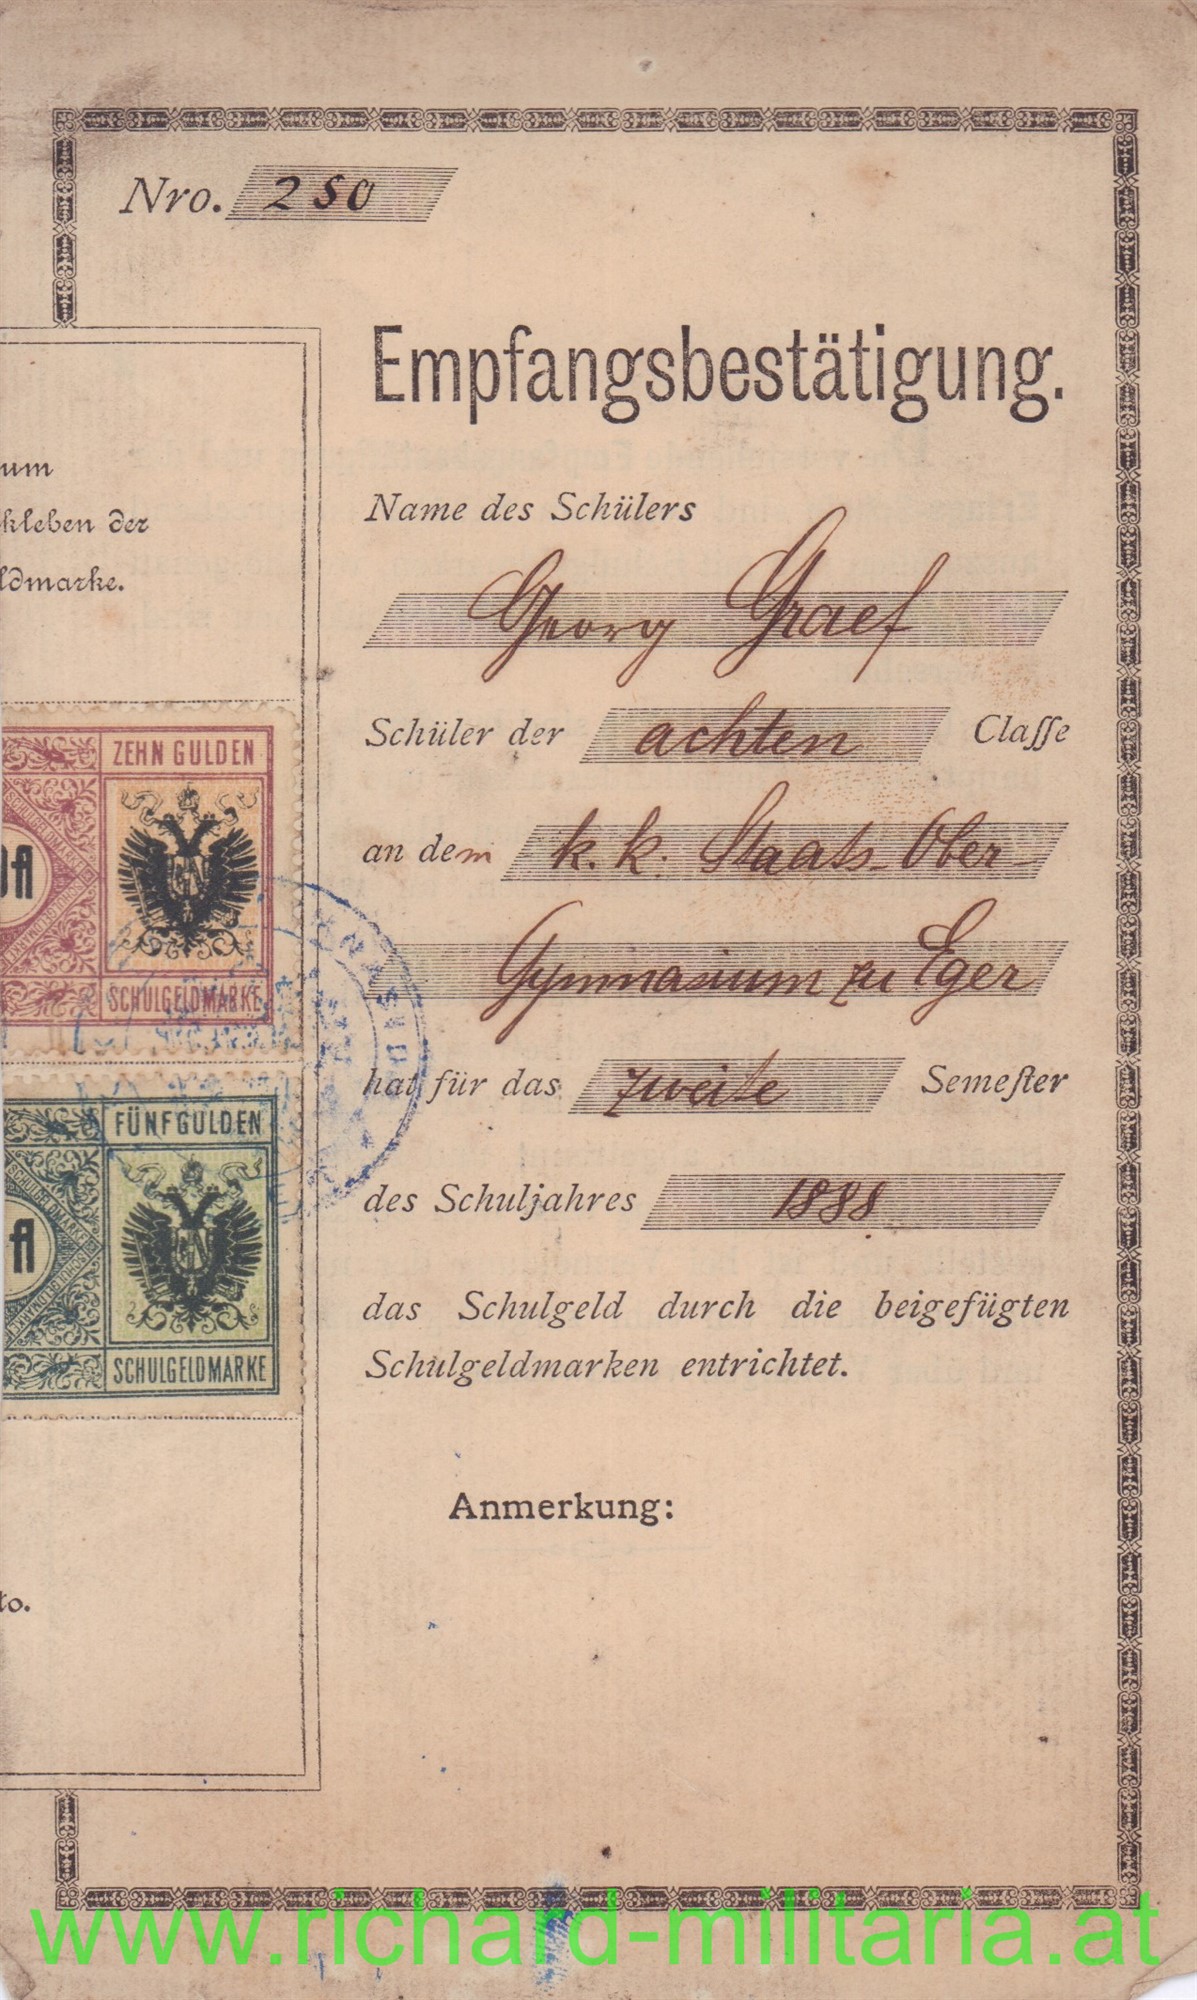 Nro. 250
Empfangsbestätigung.
um
kleben der
ldmarke.
Name des Schülers
Georg Graef
Schüler der achten Claſſe
an dem k. k. Staats-Ober-
Gymnasium zu Eger
hat für das zweite Semeſter
des Schuljahres 1888
das Schulgeld durch die beigefügten
Schulgeldmarken entrichtet.
Anmerkung:
ZEHN GULDEN
SCHULGELDMARKE
FÜNF GULDEN
A
SCHULGELDMARKE
to.
www.richard-militaria.at